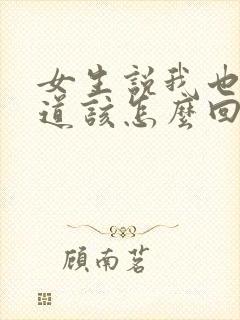 女生說我也
道該怎麼回
顧南茗